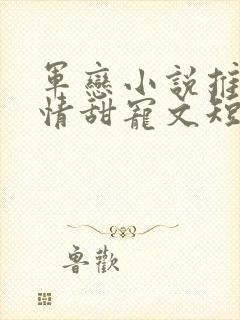 軍戀小說推
情甜寵文短
魯歡